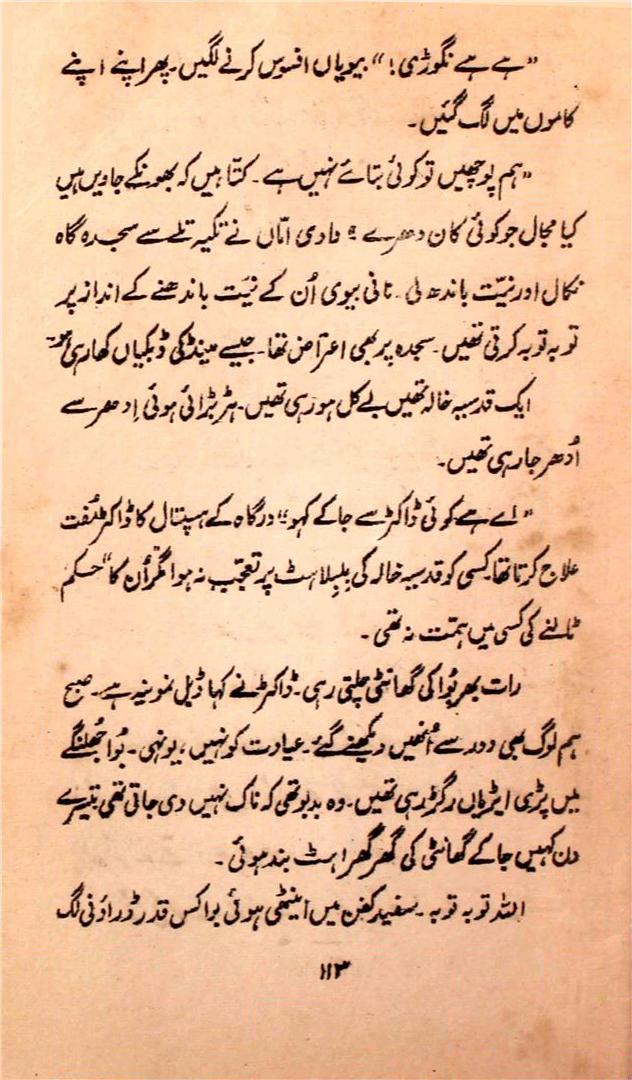 "ہے ہے نگوڑی!" بیویاں افسوس کرنے لگیں۔ پھر اپنے اپنے
کاموں میں لگ گئیں۔
"ہم پوچھیں تو کوئی بتائے نہیں ہے۔ کتا ہیں کہ بھونکے جاویں ہیں
کیا مجال جو کوئی کان دھرے؟ دادی اماں نے تکیہ تلے سے سجدہ گاہ
نکال اور نیت باندھ لی۔ نانی بیوی اُن کے نیت باندھنے کے انداز پر
توبہ توبہ کرتی تھیں۔ سجدہ پر بھی اعتراض تھا۔ جیسے مینڈکی ڈبکیاں کھا رہی ہو۔
ایک قدسیہ خالہ تھیں بے کل ہو رہی تھیں۔ ہڑبڑائی ہوئی اِدھر سے
اُدھر جا رہی تھیں۔
"اے ہے کوئی ڈاکٹر سے جا کے کہو" درگاہ کے ہسپتال کا ڈاکٹر مُفت
علاج کرتا تھا۔ کسی کو قدسیہ خالہ کی بلبلاہٹ پر تعجب نہ ہوا مگر اُن کا "حکم
ٹالنے کی کسی میں ہمت نہ تھی۔
رات بھر بُوا کی گھانٹی چلتی رہی۔ ڈاکٹر نے کہا ڈبل نمونیہ ہے۔ صبح
ہم لوگ بھی دور سے اُنھیں دیکھنے گئے۔ عیادت کو نہیں، یونہی۔ بُوا جھلنگے
میں پڑی ایڑیاں رگڑ رہی تھیں۔ وہ بدبو تھی کہ ناک نہیں دی جاتی تھی تیسرے
دن کہیں جا کے گھانٹی کی گھر گھراہٹ بند ہوئی۔
اللہ توبہ توبہ۔ سفید کفن میں اینٹھی ہوئی بوا کس قدر ڈراؤنی لگ
۱۱۳